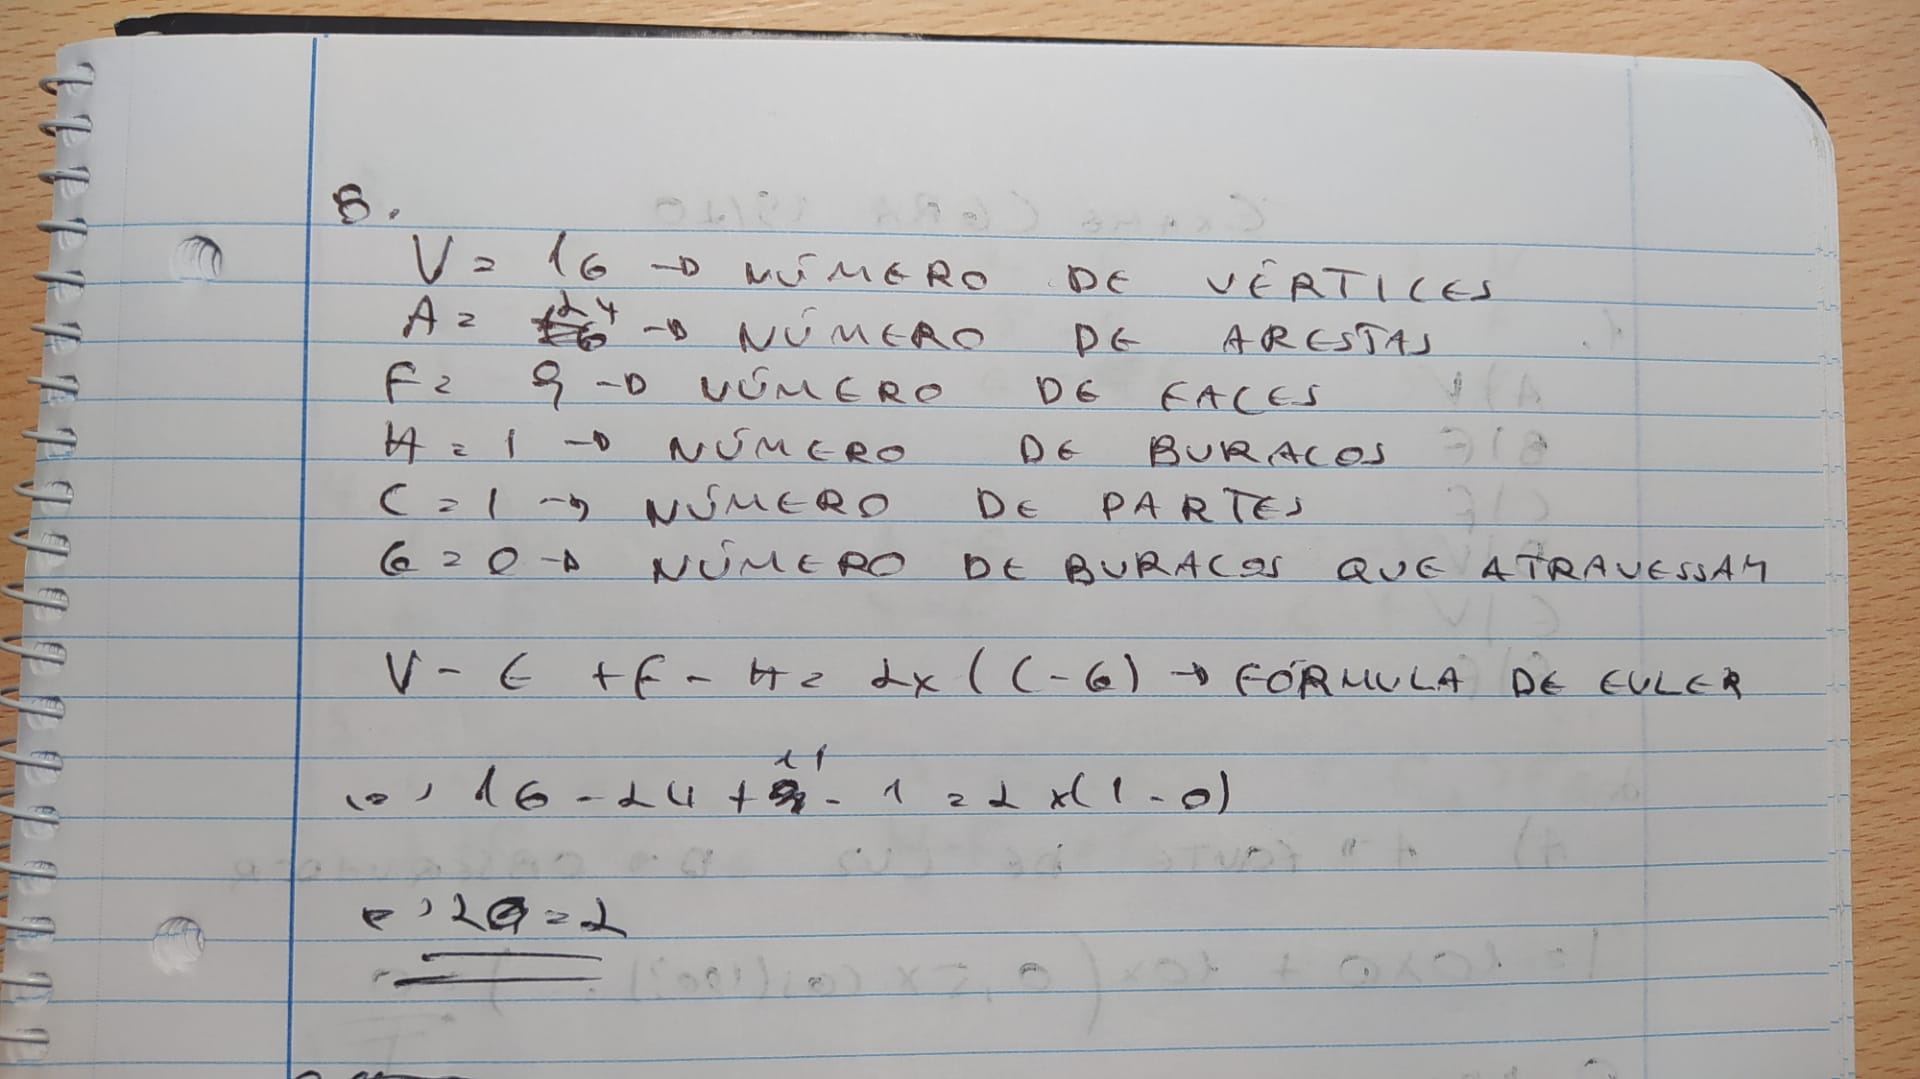 8.
V = 16 → NÚMERO DE VÉRTICES
A = 24 → NÚMERO DE ARESTAS
F = 9 → NÚMERO DE FACES
H = 1 → NÚMERO DE BURACOS
C = 1 → NÚMERO DE PARTES
G = 0 → NÚMERO DE BURACOS QUE ATRAVESSAM
V - E + F - H = 2x (C - G) → FÓRMULA DE EULER
(=) 16 - 24 + 11 - 1 = 2 x(1 - 0)
= 2